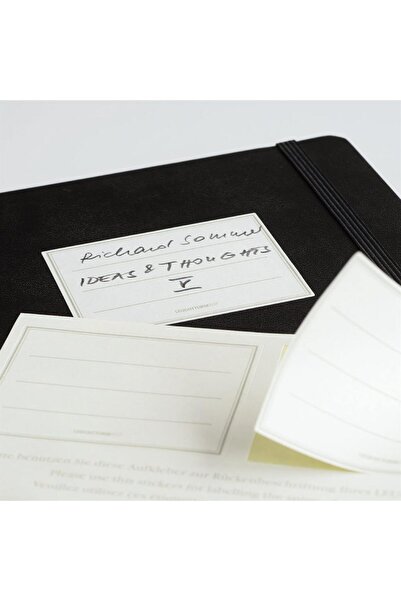 Richard Sommer
IDEAS & THOUGHTS
V
LEUCHTTURM
LEUCHTTURM
benutzen Sie diese Aufkleber zur Rückenbeschriftung Ihres
Please use this stickers for labelling the
Veuillez utiliser ces